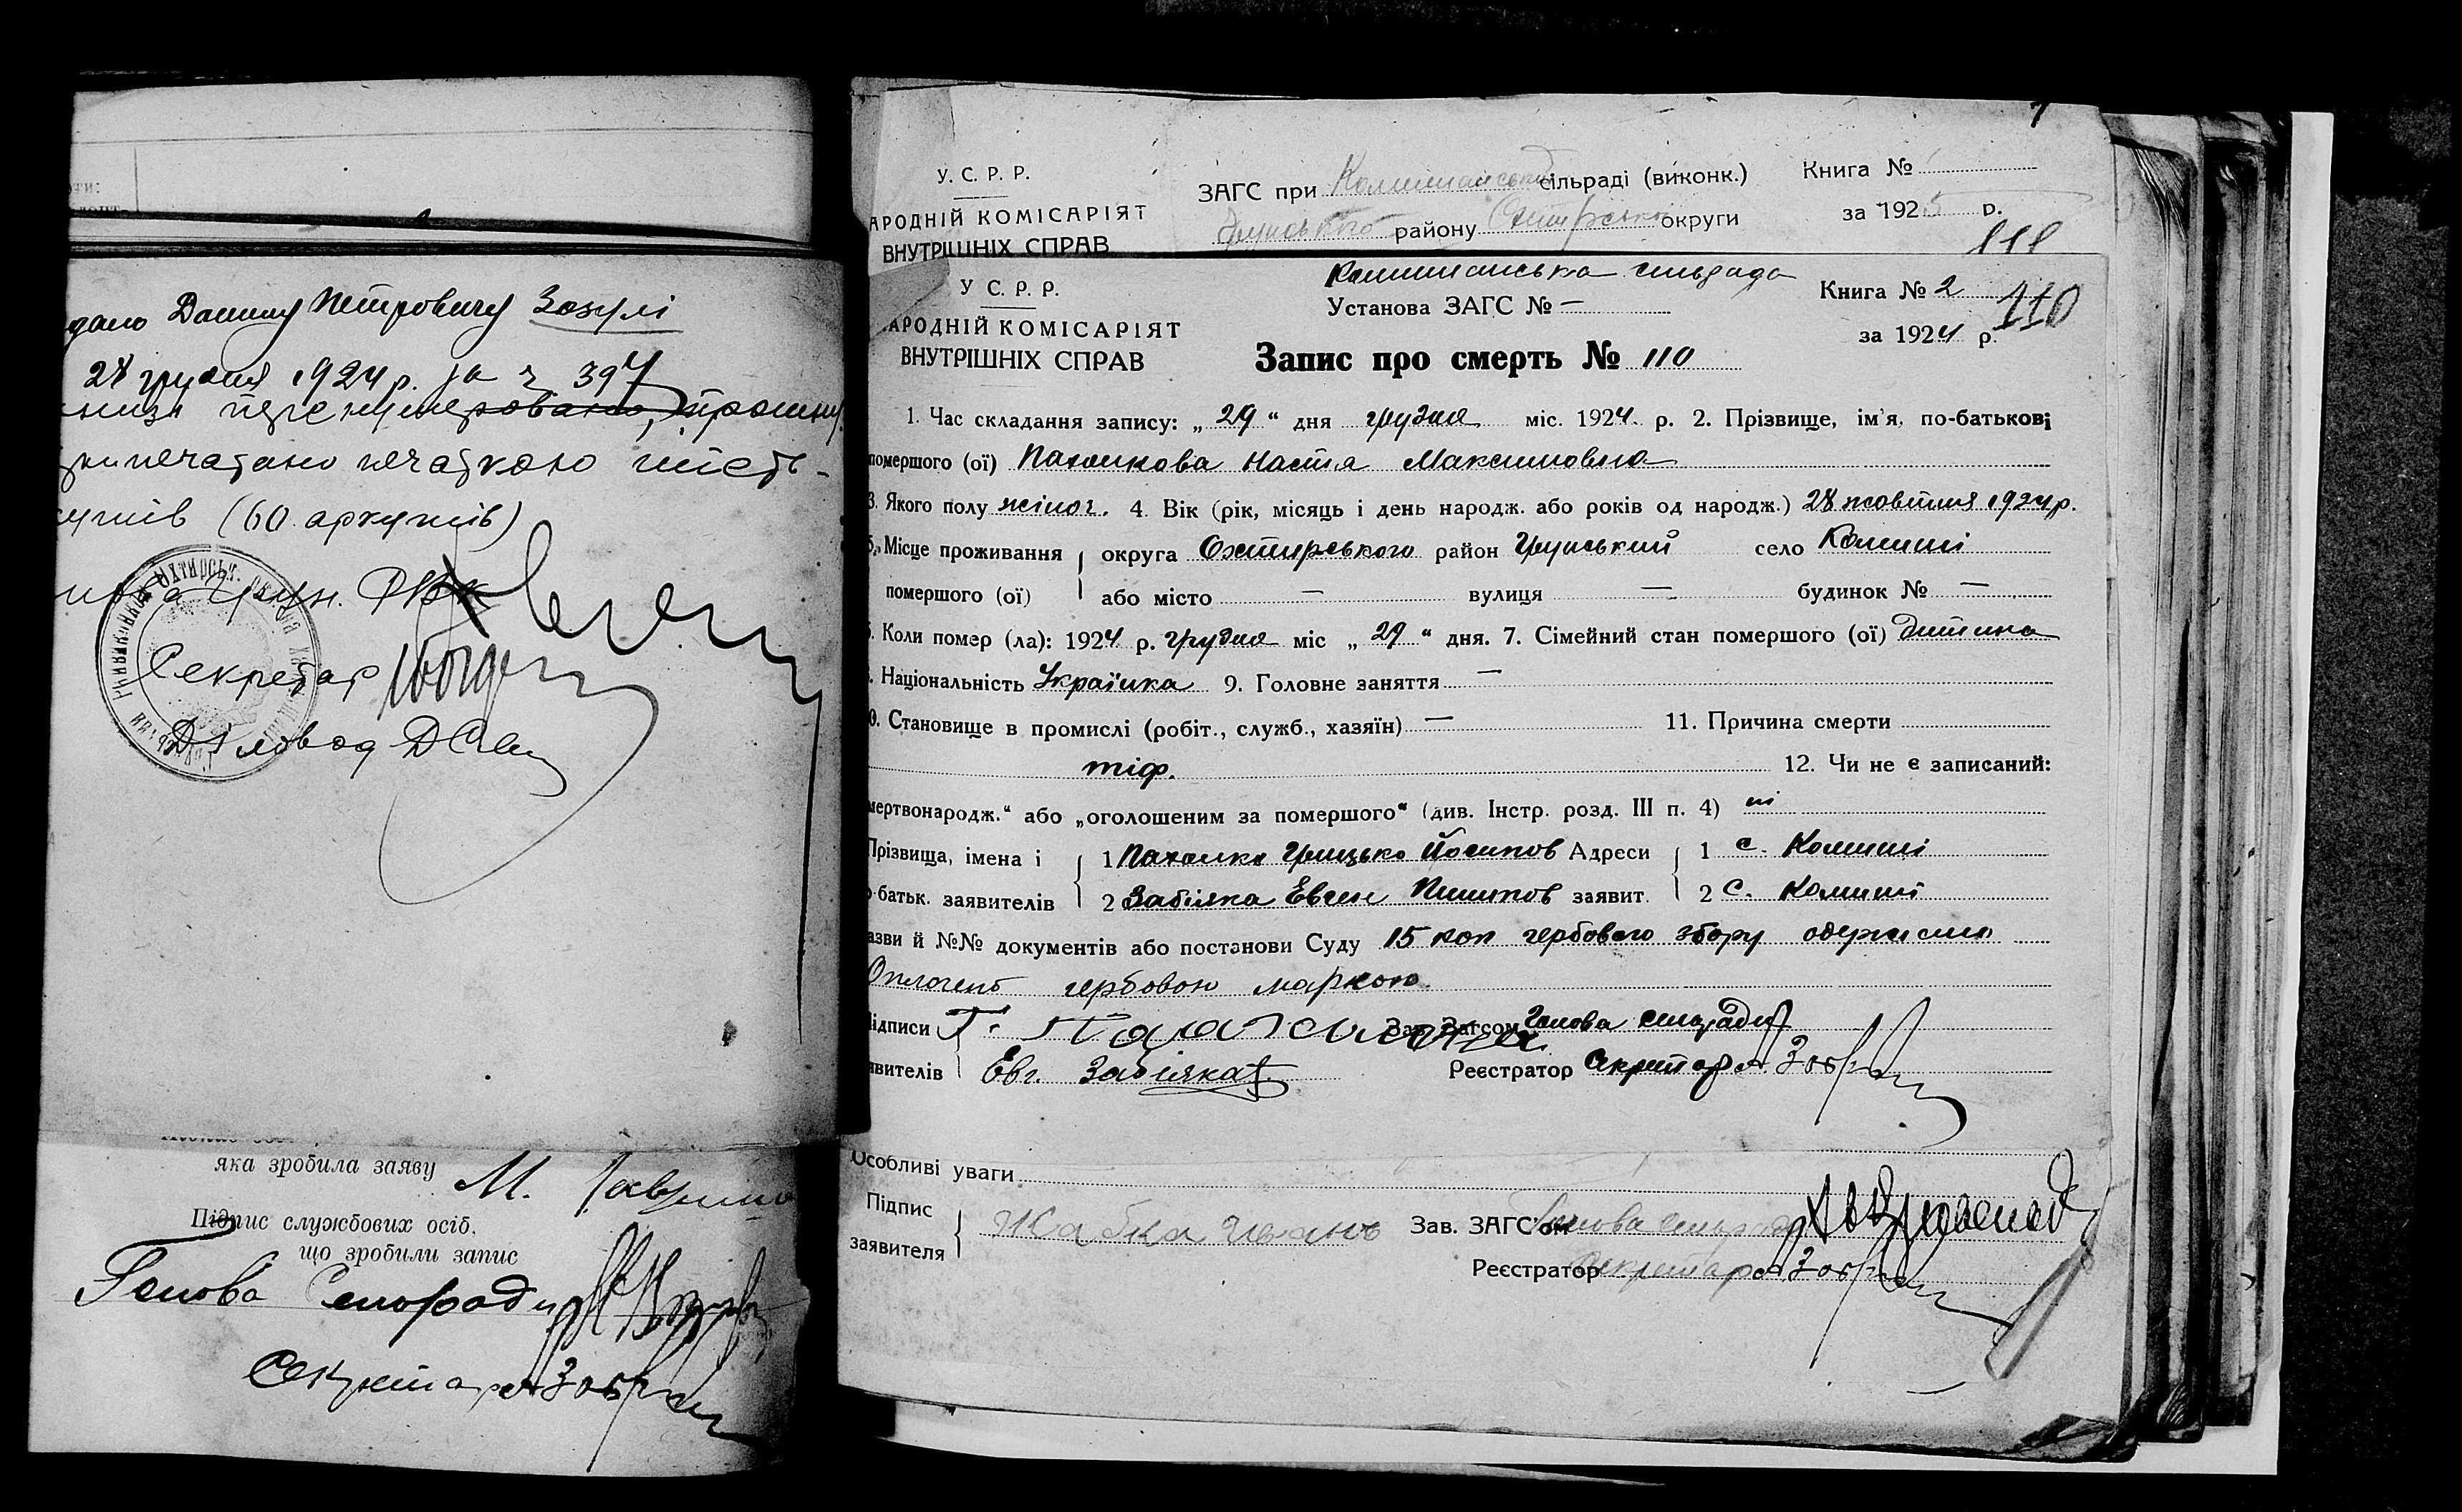 дано Данилу Петровичу Зозулі
28 грудня 1924 р. за ч 394
перенумеровано, прошну
припечатано печаткою шість-
(60 аркушів)
Грун. РВК
Секретар
Діловод
яка зробила заяву М.
Підпис службових осіб,
що зробили запис
Голова Сільради
Секретар
У. С. Р. Р.
АРОДНІЙ КОМІСАРІЯТ
ВНУТРІШНІХ СПРАВ
ЗАГС при Комишанській сільраді (виконк.)
Грунського району Охтирської округи
Книга №
за 1925 р.
111
У С. Р. Р.
АРОДНІЙ КОМІСАРІЯТ
ВНУТРІШНІХ СПРАВ
Комишанська сільрада
Установа ЗАГС № —
Книга № 2 110
за 1924 р.
Запис про смерть № 110
1. Час складання запису: „ 29 “ дня грудня міс. 1924. р. 2. Прізвище, ім'я, по-батькові
помершого (ої) Пахолкова Настя Максимовна
3. Якого полу жіноч. 4. Вік (рік, місяць і день народж. або років од народж.) 28 жовтня 1924 р.
5. Місце проживання округа Охтирського район Грунський село Комиші
помершого (ої) або місто — вулиця — будинок № —
Коли помер (ла): 1924 р. грудня міс „ 29 “ дня. 7. Сімейний стан помершого (ої) дитина
Національність Українка 9. Головне заняття —
0. Становище в промислі (робіт., служб., хазяїн) — 11. Причина смерти
тіф. 12. Чи не є записаний:
мертвонародж.“ або „оголошеним за помершого“ (див. Інстр. розд. III п. 4) ні
Прізвища, імена і 1 Пахолко Грицько Йосипов Адреси 1 с. Комиші
по-батьк. заявителів 2 Забіяка Евген Пилипов заявит. 2 с. Комиші
азви й №№ документів або постанови Суду 15 коп гербового збору одержано
Оплочено гербовою маркою.
Підписи Г. Пахолка Зав. Загсом Голова сільради
явителів Евг. Забіяка Реєстратор Секретар
Особливі уваги
Підпис
заявителя Жабка Іванъ
Зав. ЗАГС'ом Голова сільради
Реєстратор Секретар